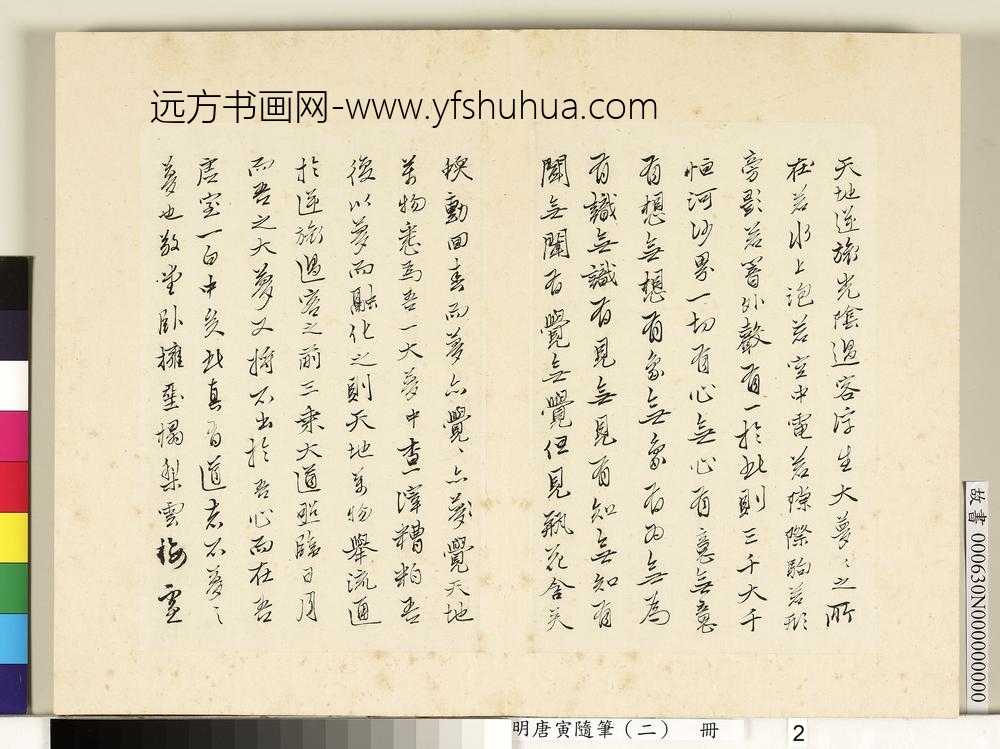 远方书画网-www.yfshuhua.com
天地逆旅光陰過客浮生大夢〻之所
在若水上泡若空中電若隙際駒若形
旁影若篃外聲有一於此則三千大千
恒河沙界一切有心無心有意無意
有想無想有象無象有為無為
有識無識有見無見有知無知有
聞無聞有覺無覺但見瓶花含笑
動回書而夢亦覺〻亦夢覺天地
萬物悉為吾一大夢中查滓糟粕吾
復以夢而融化之則天地萬物舉流通
於逆旅過客之前三乘大道照臨日月
而吾之大夢又將不出於吾心而在吾
居室一白中矣此真有道者不夢〻
夢也敬堂臥擁壘榻梨雲梅雪
故書 000630N000000000
明唐寅隨筆(二) 冊 2